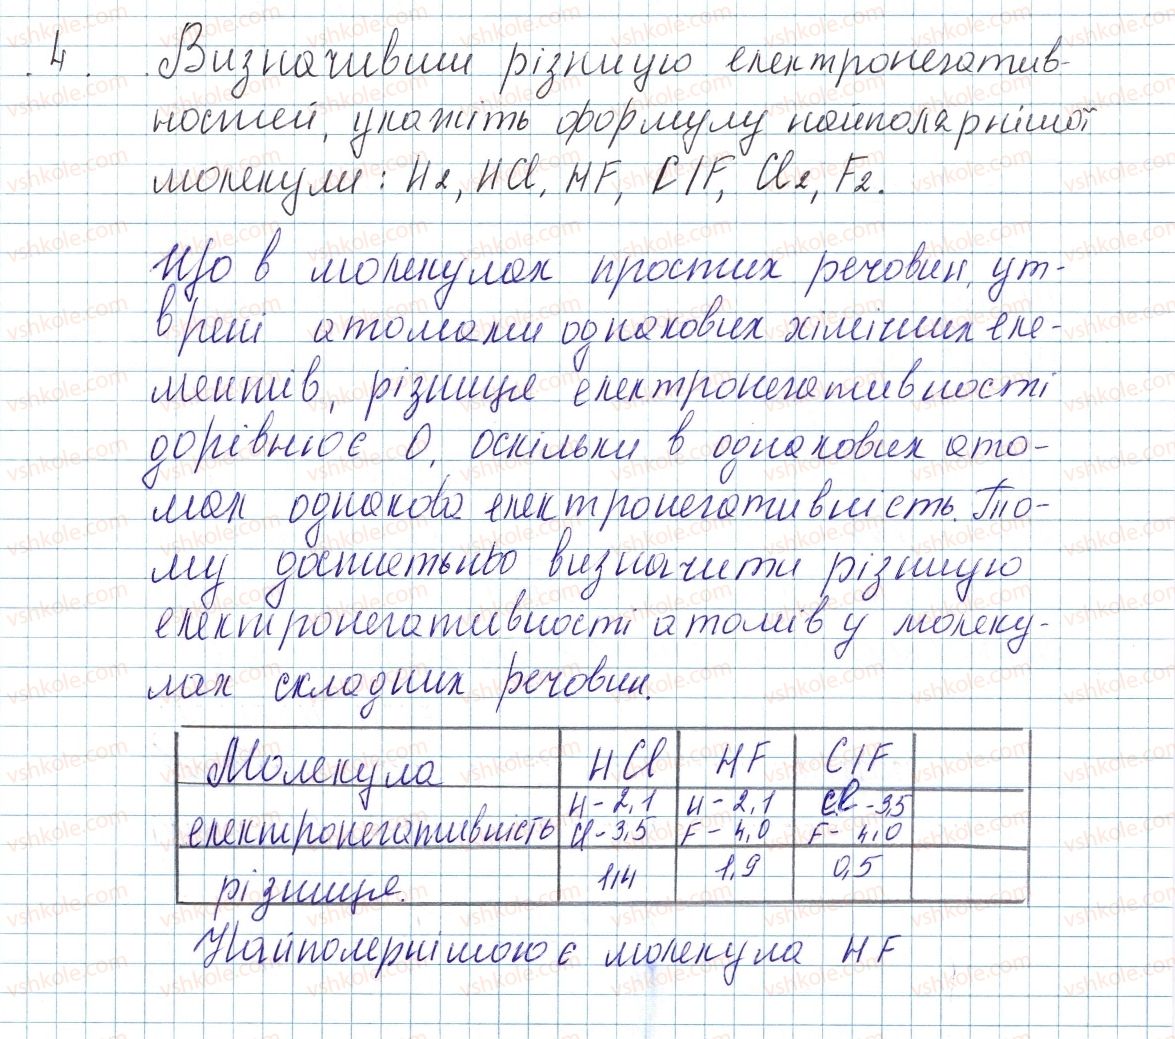 4. Визначивши різницю електронегатив-
ностей, укажіть формулу найполярнішої
молекули: H2, HCl, HF, ClF, Cl2, F2.
Що в молекулах простих речовин, ут-
врені атомами однакових хімічних еле-
ментів, різниця електронегативності
дорівнює 0, оскільки в однакових ато-
мах однакова електронегативність. То-
му достатньо визначити різницю
електронегативності атомів у молеку-
лах складних речовин.
Молекула HCl HF ClF
H - 2,1 H - 2,1 Cl - 3,5
електронегативність Cl - 3,5 F - 4,0 F - 4,0
різниця. 1,4 1,9 0,5
Найполернішою є молекула HF